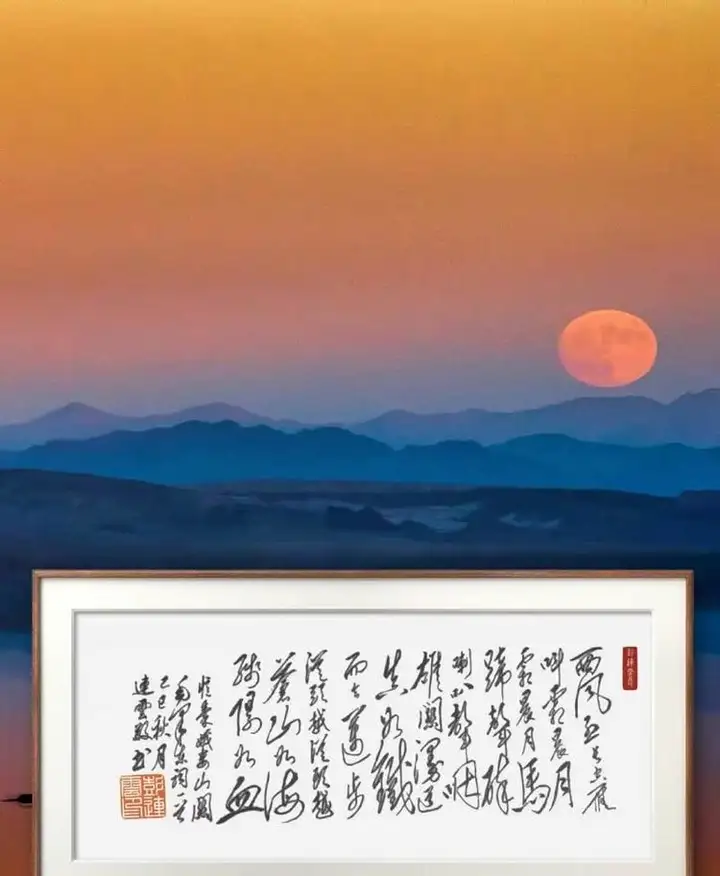 西風烈長空雁
叫霜晨月
霜晨月馬
蹄聲碎
喇叭聲咽
雄關漫道
真如鐵
而今邁步
從頭越從頭越
蒼山如海
殘陽如血
憶秦娥婁山關
毛澤東詞一首
乙巳秋月
連雲书
彭連
雲印